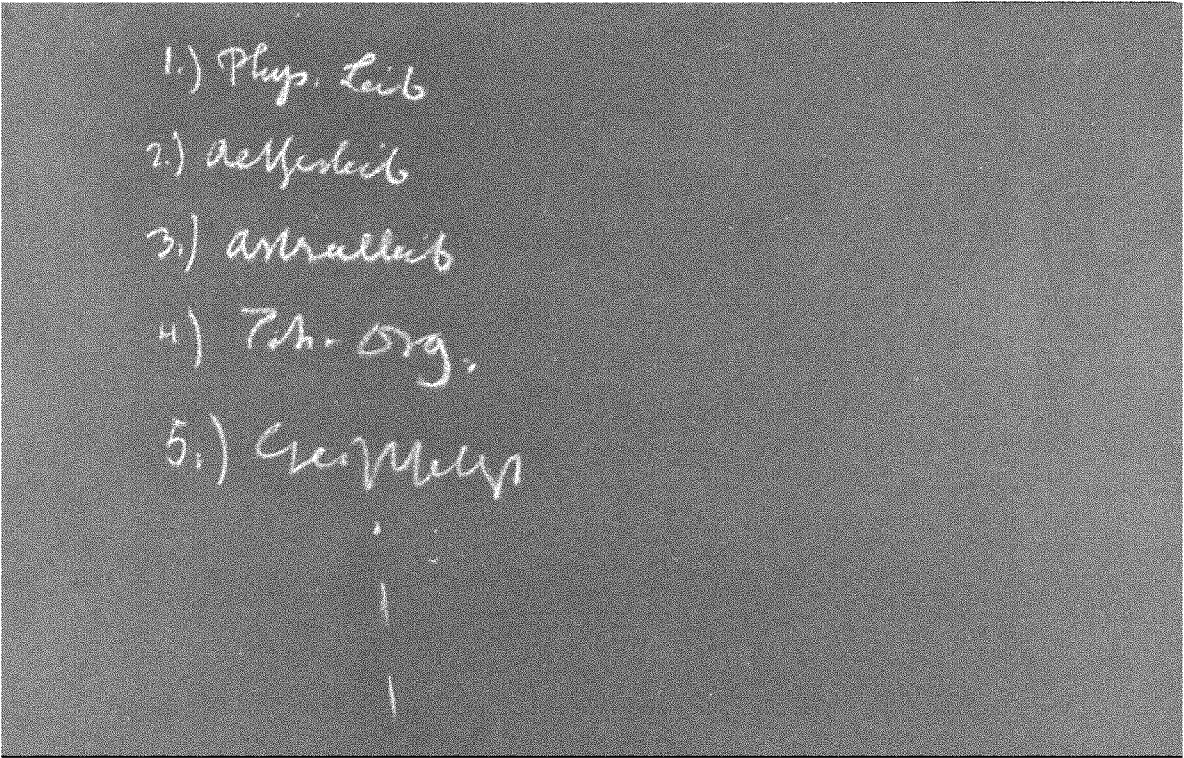 1.) Phys. Leib
2.) Aetherleib
3.) Astralleib
4) Ich. Org.
5.) Geistselbst